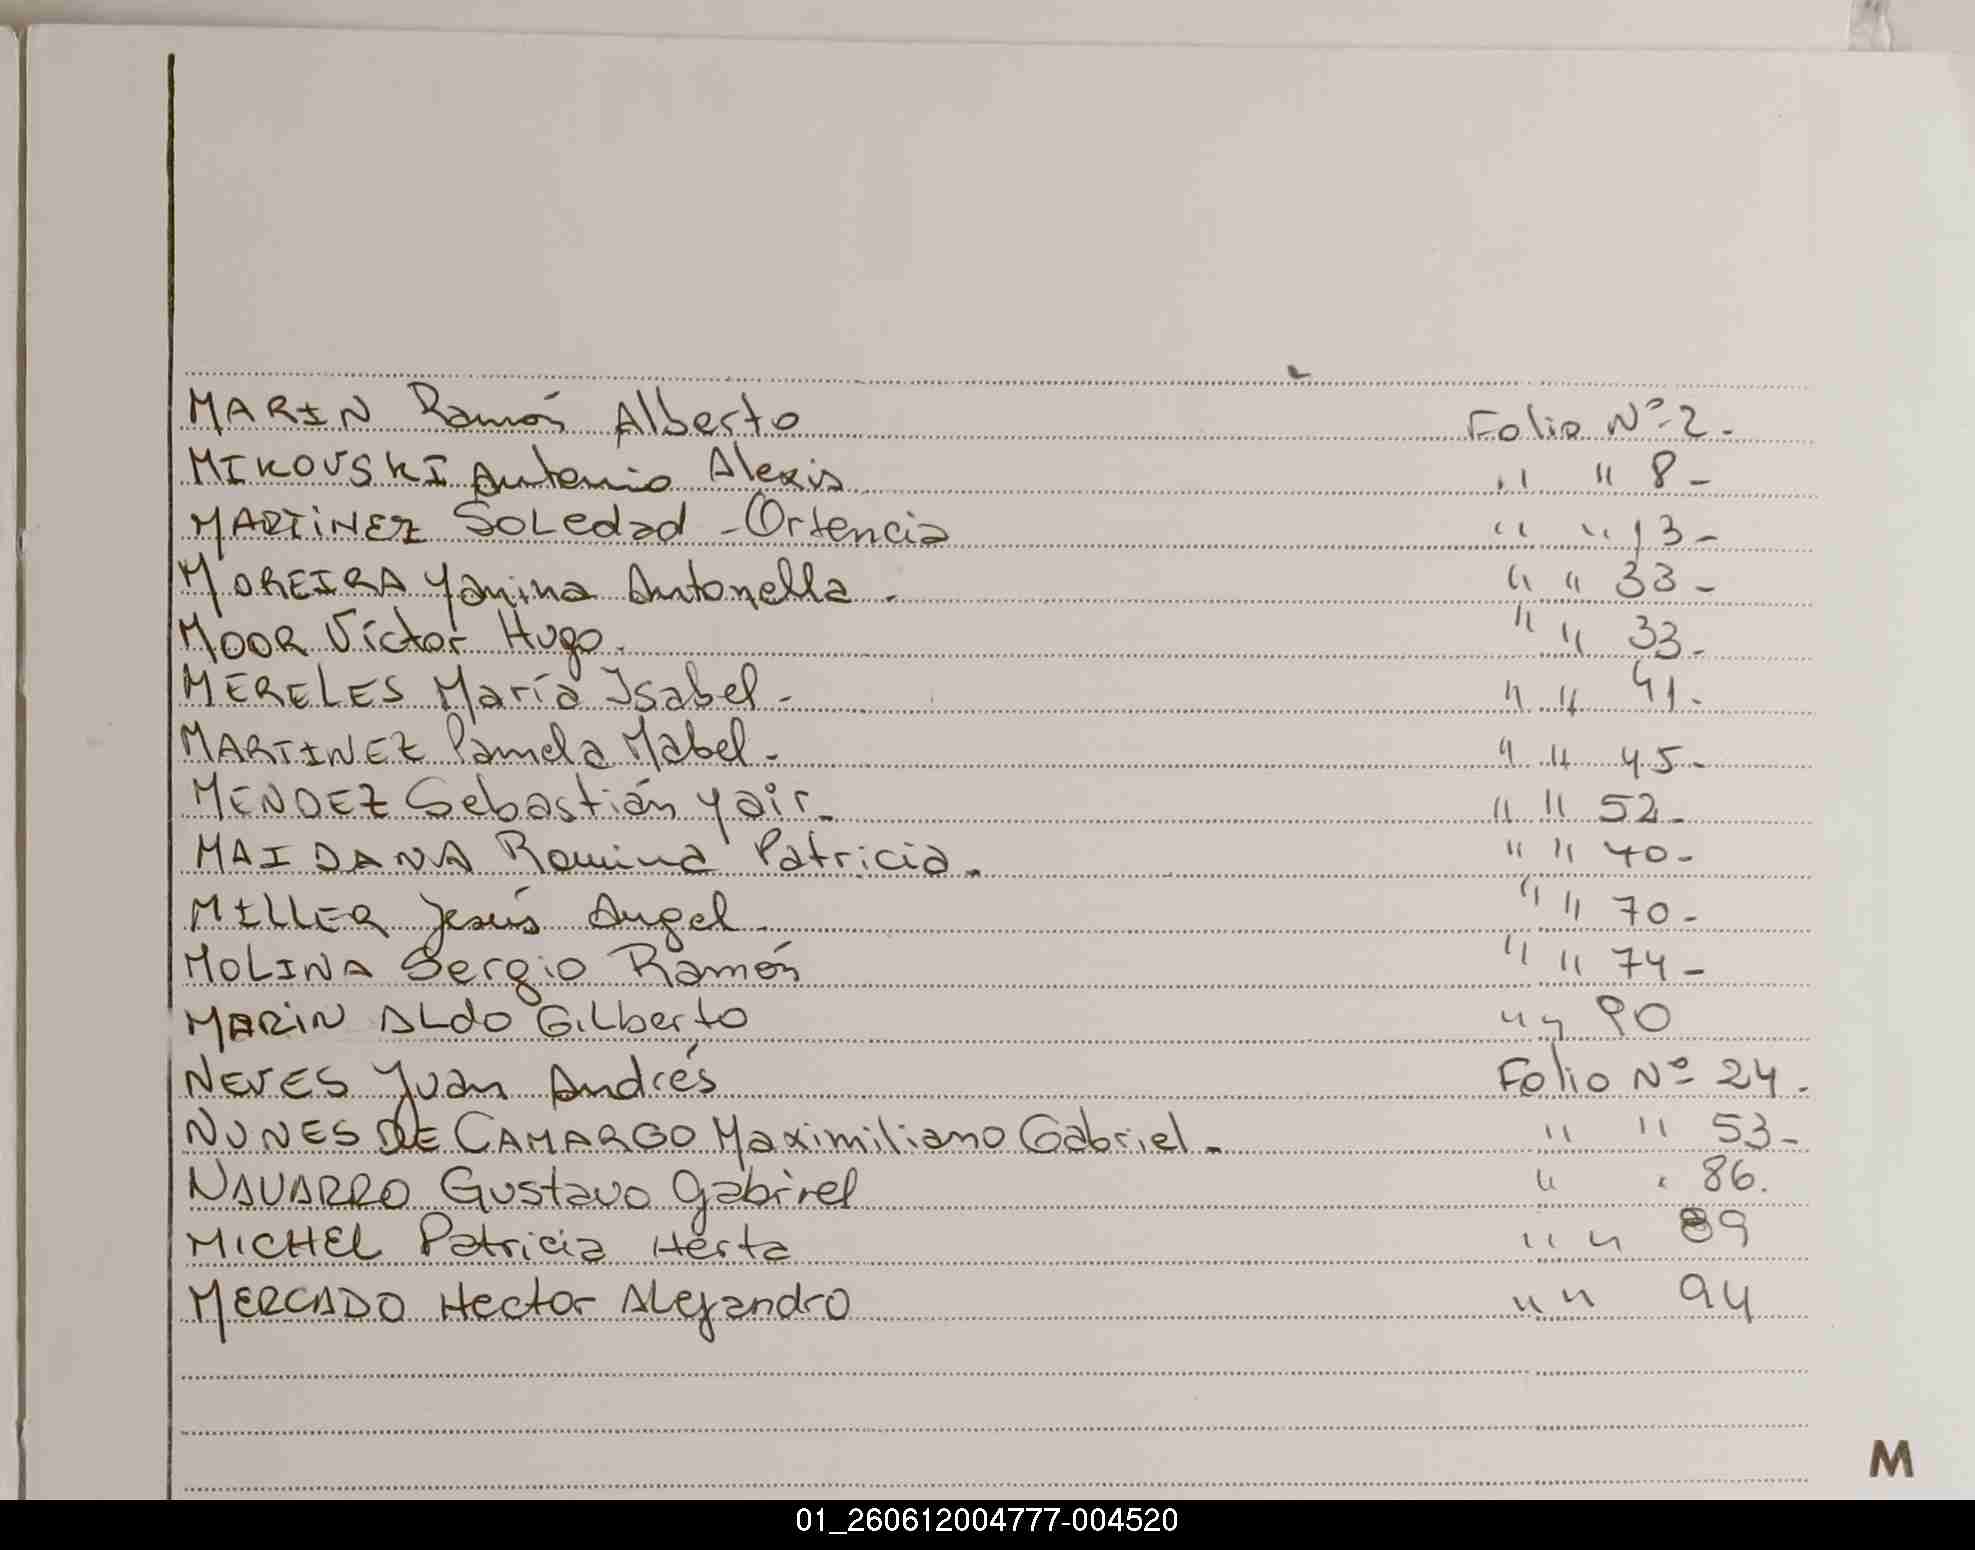 MARIN Ramón Alberto Folio Nº 2.
MIKOVSKI Antonio Alexis " " 8 -
MARTINEZ Soledad - Ortencia " " 13 -
MOREIRA Yanina Antonella . " " 33 -
MOOR Víctor Hugo. " " 33.
MERELES María Isabel - " " 41.
MARTINEZ Pamela Mabel - " " 45 -
MENDEZ Sebastián Yair - " " 52 -
MAIDANA Romina Patricia . " " 40 -
MILLER Jesús Angel . " " 70 -
MOLINA Sergio Ramón " " 74 -
MARIN ALdo GiLberto " " 90
NEVES Juan Andrés Folio Nº 24 .
NUNES DE CAMARGO Maximiliano Gabriel . " " 53 -
NAVARRO Gustavo Gabirel " " 86.
MICHEL Patricia Herta " " 89
MERCADO Hector ALejandro " " 94
M
01_260612004777-004520